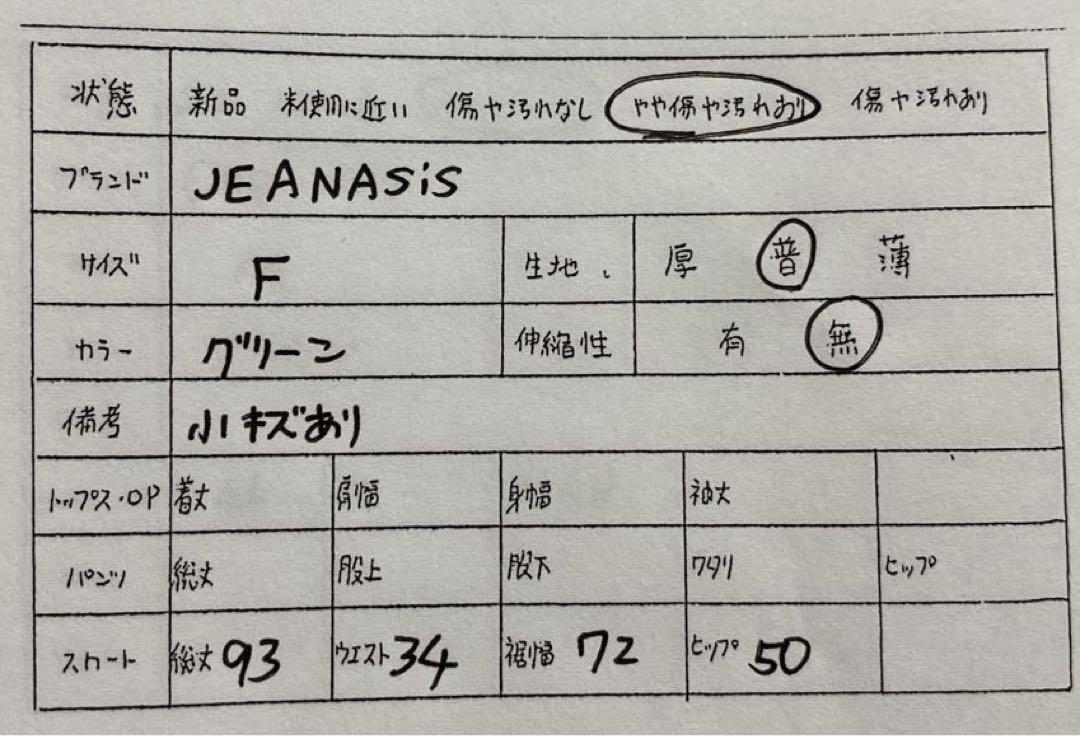 状態 新品 未使用に近い 傷や汚れなし やや傷や汚れあり 傷や汚れあり
ブランド JEANASiS
サイズ F 生地 厚 普 薄
カラー グリーン 伸縮性 有 無
備考 小キズあり
トップス・OP 着丈 肩幅 身幅 袖丈
パンツ 総丈 股上 股下 ワタリ ヒップ
スカート 総丈 93 ウエスト 34 裾幅 72 ヒップ 50